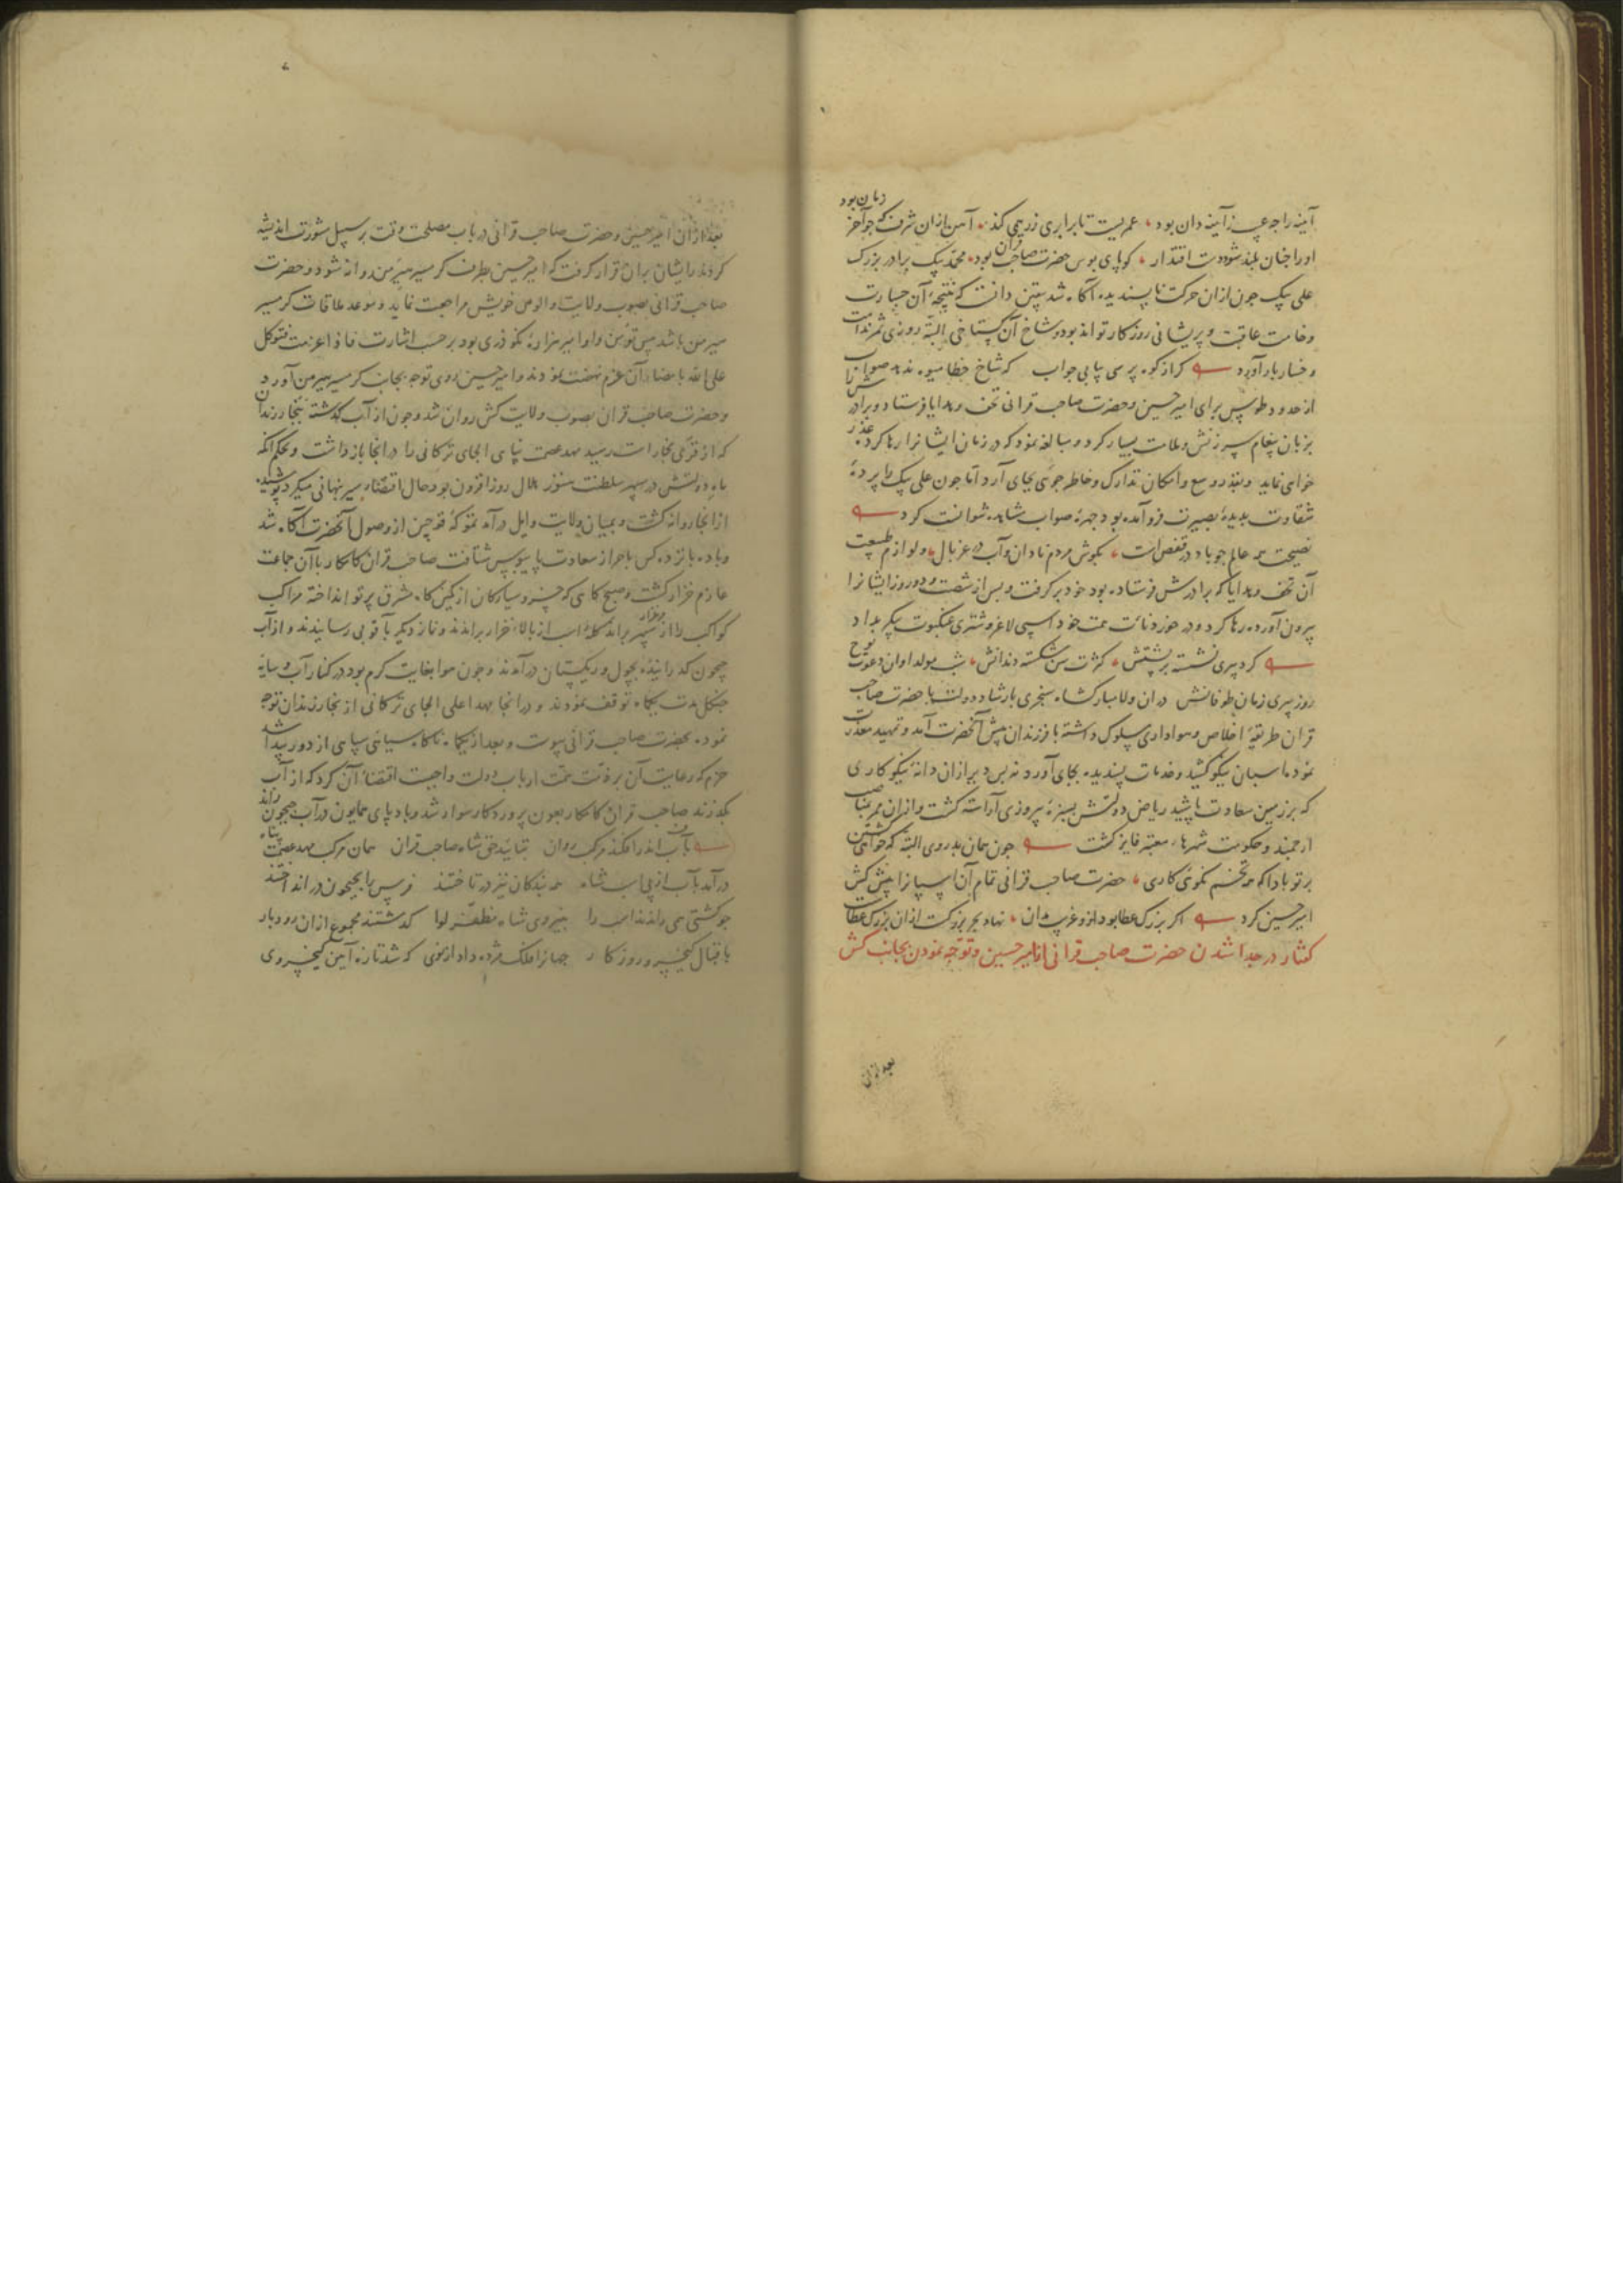 آینه را چه عیب ز آینه دان بود عمریست تا برابری زر همی کند آهن ازان شرف که چو آخر
زمان بود
او را چنان بلند شود دست اقتدار کو پای بوس حضرت صاحب قران بود محمد بیک برادر بزرک
علی بیک چون ازان حرکت ناپسندیده آکاه شد یقین دانست که نتیجهٔ آن جسارت
وخامت عاقبت و پریشانی روزکار تواند بود و شاخ آن کستاخی البته روزی ثمر ندامت
و خسار بار آورد کر از کوه پرسی بیابی جواب که شاخ خطا میوه ندهد صواب
از حدود طوس برای امیر حسین و حضرت صاحب قرانی تحف و هدایا فرستاد و برادرش را
بزبان پیغام سرزنش و ملامت بسیار کرد و مبالغه نمود که در زمان ایشانرا رها کرده عذر
خواهی نماید و بقدر وسع و امکان تدارک و خاطر جوئی بجای آرد اما چون علی بیک را پردهٔ
شقاوت بدیدهٔ بصیرت فرو آمده بود چهرهٔ صواب مشاهده نتوانست کرد
نصیحت همه عالم چو باد در قفص است بکوش مردم نادان و آب در غربال و لوازم
آن تحف و هدایا که برادرش فرستاده بود خود بر کرفت و پس از شصت و دو روز ایشانرا
بیرون آورده رها کرد و در خور دنائت همت خود اسپی لاغر و شتری عنکبوت پیکر بداد
کرد پیری نشسته بر پشتش کثرت سن شکسته دندانش شب مولد اوان دعوت نوح
روز پیری زمان طوفانش دران ولا مبارکشاه سنجری بارشاد دولت با حضرت صاحب
قران طریقهٔ اخلاص و هواداری سلوک داشته با فرزندان پیش آنحضرت آمد و تمهید معذرت
نموده اسبان نیکو کشید و خدمات پسندیده بجای آورد نه بس دیر ازان دانهٔ نیکو کاری
که بر زمین سعادت پاشید ریاض دولتش بسبزهٔ پیروزی آراسته کشت و ازان ممر بمناصب
ارجمند و حکومت شهرها معتبر فایز کشت چون همان بدروی البته که خواهی کشتن
بر تو بادا که همه تخم نکوئی کاری حضرت صاحب قرانی تمام آن اسپانرا پیش کش
امیر حسین کرد اکر بزرک عطا بود ازو غریب مدان نهاد بحر بزرکست ازان بزرک عطاست
کفتار در جدا شدن حضرت صاحب قرانی از امیر حسین و توجه نمودن بجانب کش
بعد ازان
بعد ازان امیر حسین و حضرت صاحب قرانی در باب مصلحت وقت بر سبیل مشورت اندیشه
کردند و رایشان بران قرار کرفت که امیر حسین بطرف کرمسیر هیرمن روانه شود و حضرت
صاحب قرانی بصوب ولایت و الوس خویش مراجعت نماید و موعد ملاقات کرمسیر
هیرمن باشد پیش تومن و او امیر هزارهٔ نکودری بود بر حسب اشارت فاذا عزمت فتوکل
علی الله بامضاء آن عزم نهضت نمودند و امیر حسین روی توجه بجانب کرمسیر هیرمن آورد
و حضرت صاحب قران بصوب ولایت کش روان شد و چون از آب کذشته ببخارزندان
که از قری بخارا است رسید مهد عصمت پناهی الجای ترکانی را در انجا باز داشت و بحکم آنکه
ماه دولتش در سپهر سلطنت هنوز هلال روز افزون بود حال اقتضاء سیر نهانی میکرد پوشیده
از انجا روانه کشت و بمیان ولایت و ایل درآمد تموکهٔ قوچین از وصول آنحضرت آکاه شد
و باده پانزده کس باحراز سعادت پای بوس شتافت صاحب قران کامکار با آن جماعت
عازم خزار کشت و صبح کاهی که خسرو سیارکان از کمین کاه مشرق پرتو انداخته مراکب
کواکب را از مرغزار سپهر براند کلهٔ اسب از بالاء خزار براندند و نماز دیکر باقوبی رسانیدند و از آب
جیحون کذرانیده بچول و ریکستان درآمدند و چون هوا بغایت کرم بود در کنار آب و سایهٔ
جنکل مدت یکماه توقف نمودند و در انجا مهد اعلی الجای ترکانی از بخارزندان توجه
نموده بحضرت صاحب قرانی پیوست و بعد از یکماه ناکاه سیاهی سپاهی از دور پیدا شد
حزم که رعایت آن بر ذمت همت ارباب دولت واجبست اقتضاء آن کرد که از آب
بکذرند صاحب قران کامکار بعون پروردکار سوار شد و باد پای همایون در آب جیحون راند
بآب اندر افکند مرکب روان بتایید حق شاه صاحب قران همان مرکب مهد عصمت پناه
درآمد بآب از پی اسب شاه همه بندکان نیز در تاختند فرس را بجیحون در انداختند
چو کشتی همی راندند اسب را بنیروی شاه مظفر لوا کذشتند مجموع ازان رودبار
باقبال کیخسرو روزکار جهانرا فلک مژده داد از نوی که شد تازه آیین کیخسروی